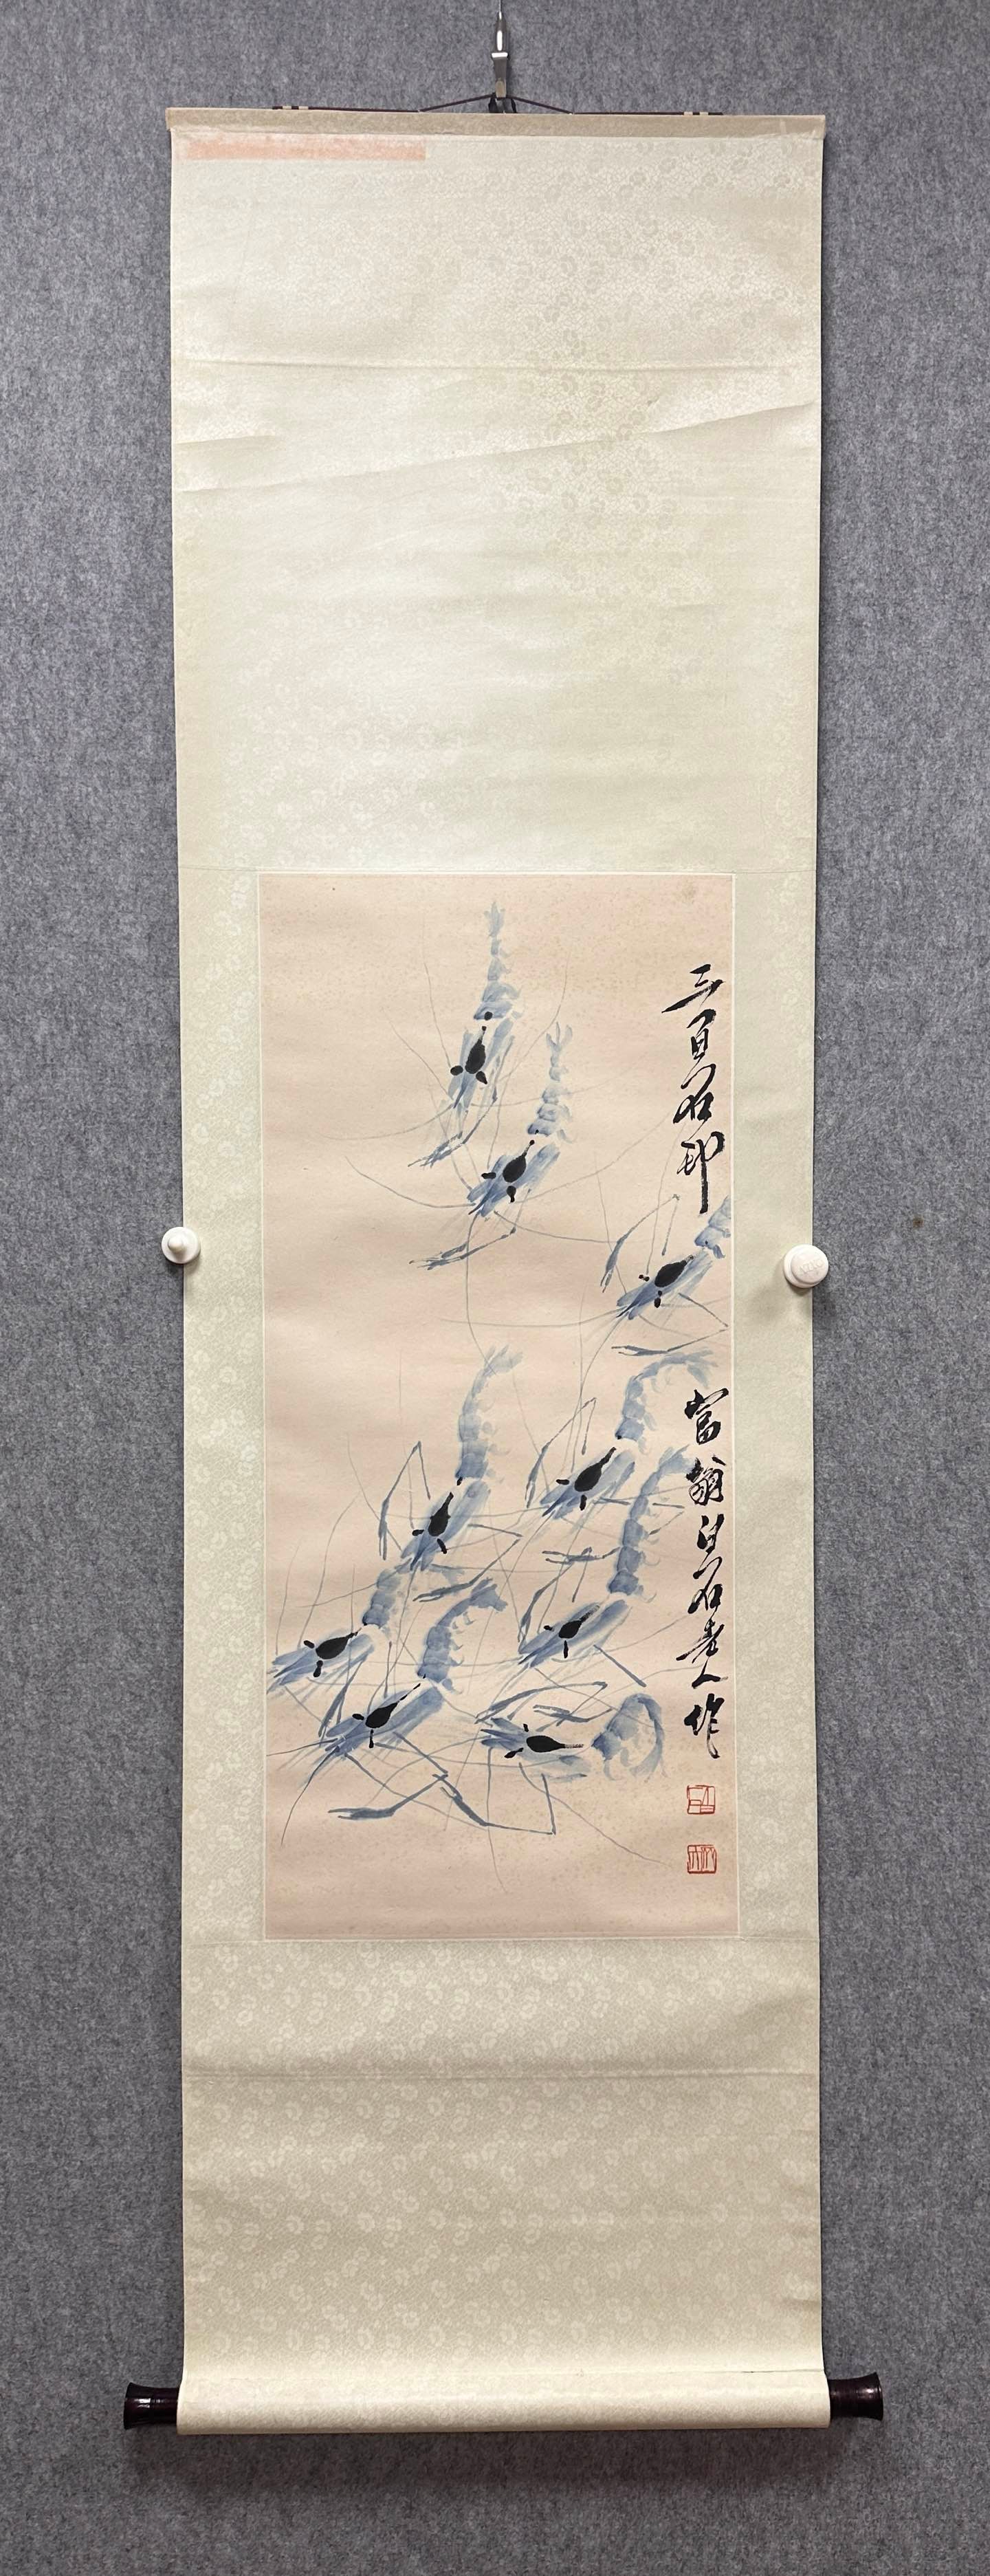 三百石印
富翁白石老人作